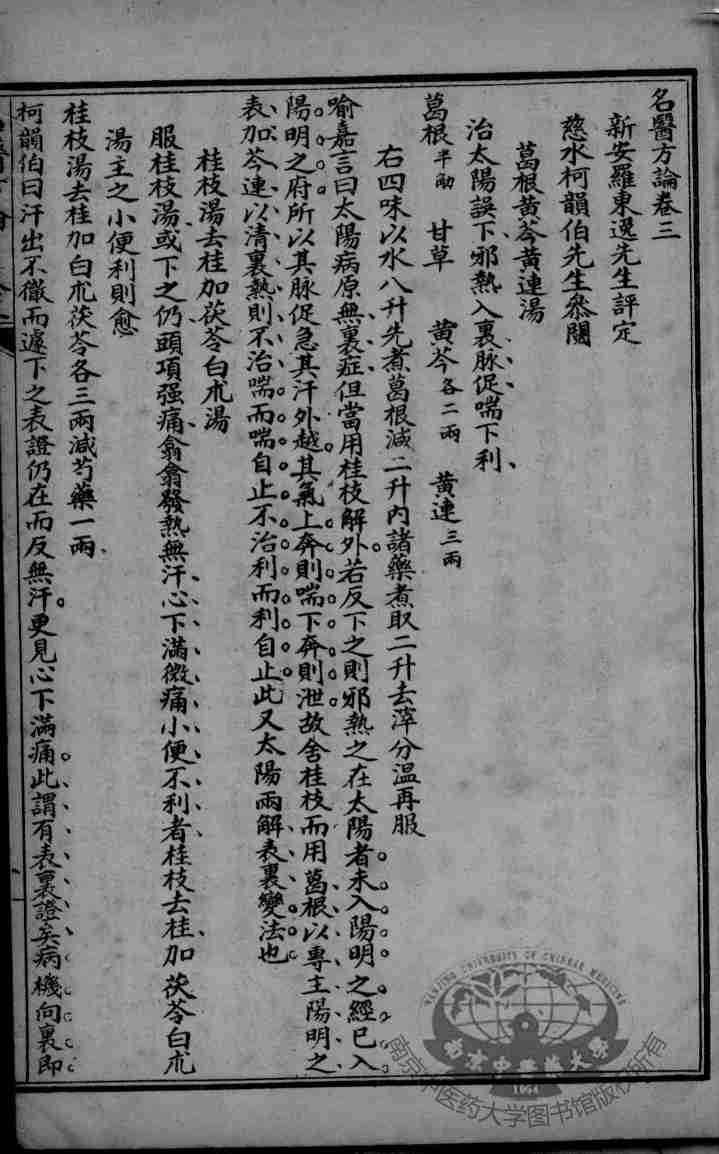 名醫方論卷三
新安羅東逸先生評定
慈水柯韻伯先生叅閱
葛根黄芩黄連湯
治太陽誤下邪熱入裏脉促喘下利
葛根半觔 甘草 黄芩各二兩 黄連三兩
右四味以水八升先煮葛根减二升内諸藥煮取二升去滓分温再服
喻嘉言曰太陽病原無裏症但當用桂枝解外若反下之則邪熱之在太陽者未入陽明之經已入
陽明之府所以其脉促急其汗外越其氣上奔則喘下奔則泄故舍桂枝而用葛根以專主陽明之
表加芩連以清裏熱則不治喘而喘自止不治利而利自止此又太陽兩解表裏變法也
桂枝湯去桂加茯苓白朮湯
服桂枝湯或下之仍頭項强痛翕翕發熱無汗心下滿微痛小便不利者桂枝去桂加茯苓白朮
湯主之小便利則愈
桂枝湯去桂加白朮茯苓各三兩减芍藥一兩
柯韻伯曰汗出不徹而遽下之表證仍在而反無汗更見心下滿痛此謂有表裏證矣病機向裏即
NANJING UNIVERSITY OF CHINESE MEDICINE
南京中醫藥大學
1954
南京中医药大学图书馆版权所有